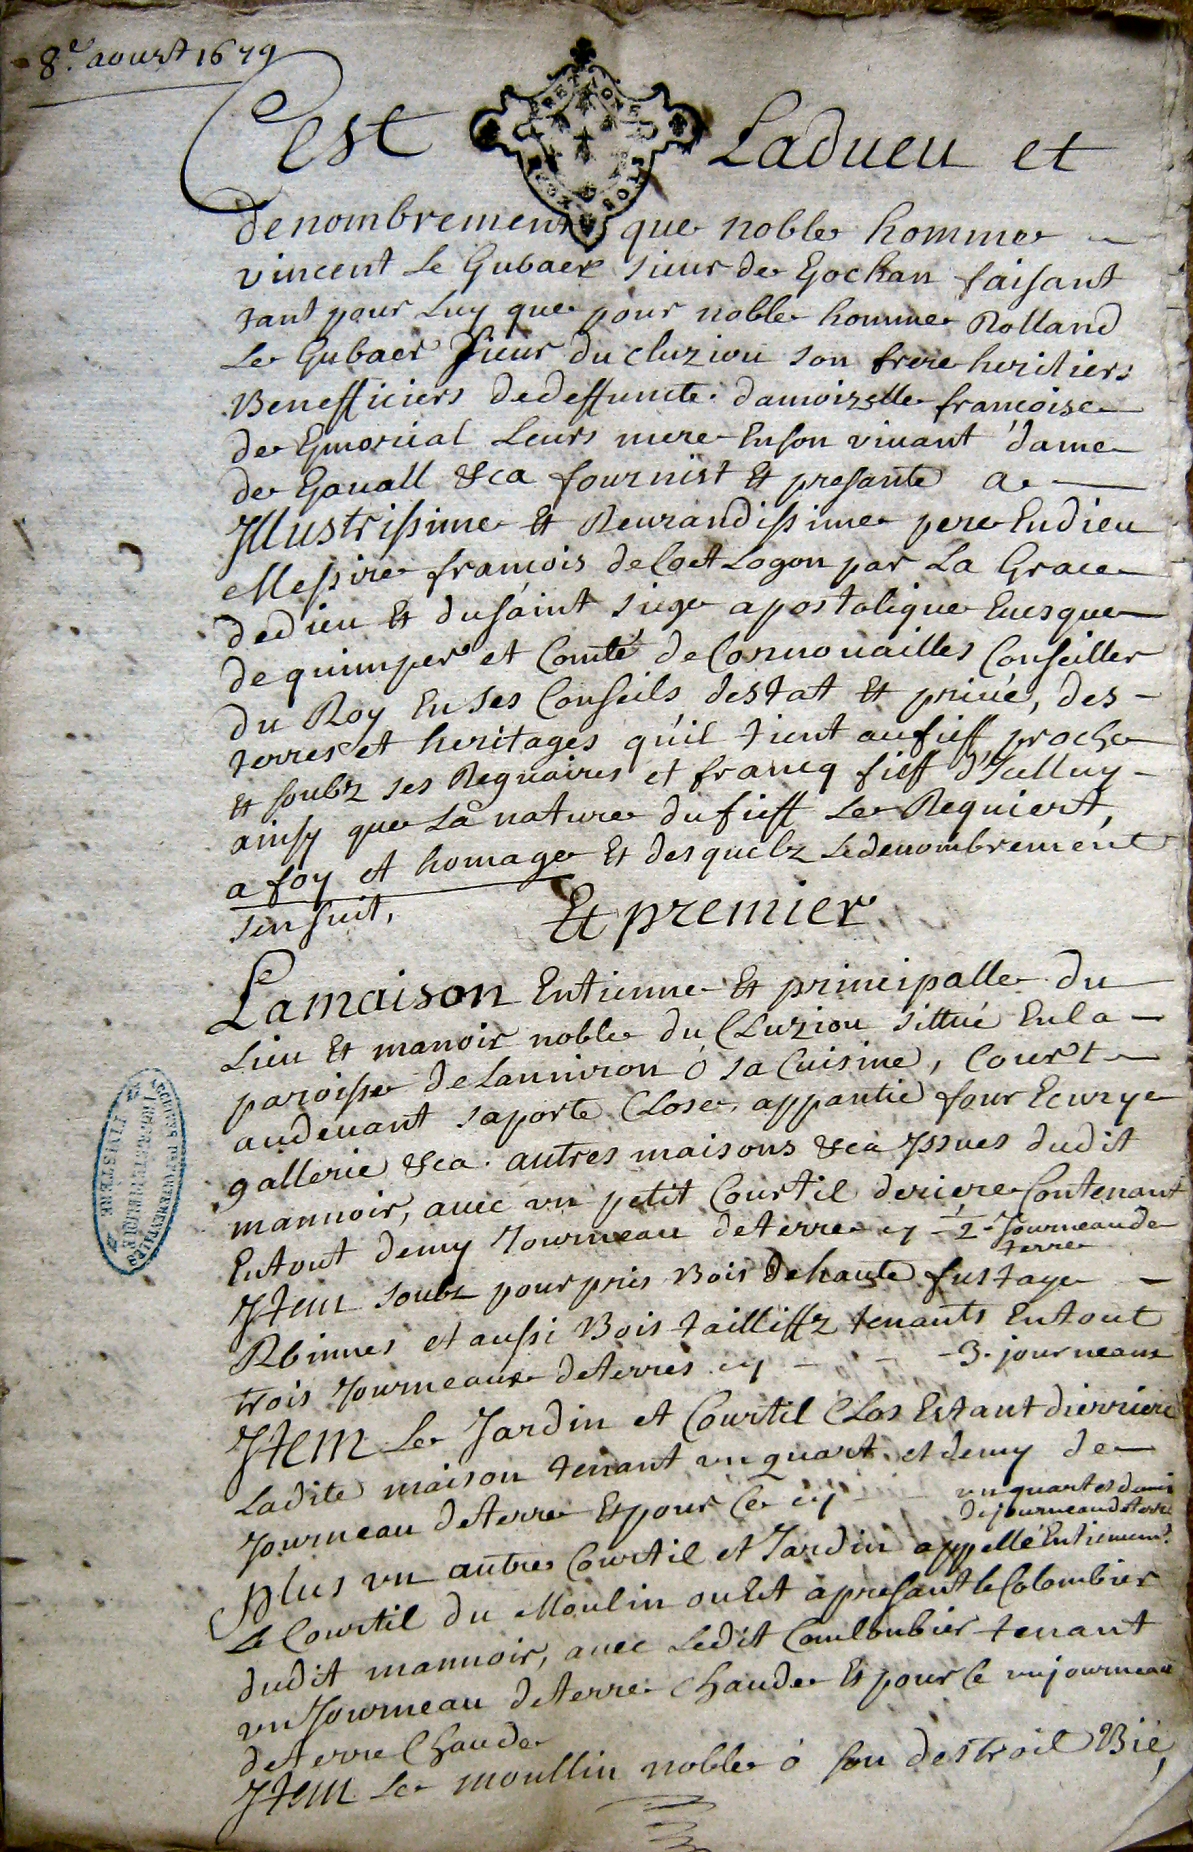 8e aoust 1679
C'est Ladueu et
denombrement que noble homme
vincent Le Gubaer sieur de Gochan faisant
tant pour Luy que pour noble homme Rolland
Le Gubaer sieur du cluziou son frere heritiers
Benefficiers dedeffuncte damoizelle francoise
de Leurs mere Enson viuant dame
de &ca fournist Et presante a
Illustrissime Et Reurandissime pere Endieu
Messire francois deCoetLogon par La Grace
dedieu Et dusaint siege apostolique Euesque
de quimper et Comte deCornouailles Conseiller
du Roy En ses Conseils destat Et priué, des
terres et heritages qu'il tient aufieff proche
Et soubz ses Regaires et francq fieff d'Icelluy
ainsy que La nature du fieff Le Requiert,
a foy et homage Et desquelz Ledenombrement
sensuit,
Et premier
Lamaison Entienne Et principalle du
Lieu Et manoir noble du CLuziou sittué Enla
paroisse deLanniron ó sa Cuisine, Court
audeuant saporte Close, appantié four Ecurye
gallerie &ca autres maisons &ca Yssues dudit
mannoir, auec vn petit Courtil deriere Contenant
Entout demy Journeau deterre cy - 1/2 Journeau de
terre
Item soubz pourpris Bois dehaute fustaye
Rbinnes et aussi Bois tailliffz tenants Entout
trois Journeaux deterres cy - - 3 journeaux
Item Le Jardin et Courtil CLos Estant dierriere
Ladite maison tenant vn quart et demy de
Journeau deterre Et pour Ce cy vn quart et demi
de journeau deterre
plus vn autre Courtil et Jardin appellé Entiennemt
Le Courtil du Moulin ou Est apresant le Colombier
dudit mannoir, auec Ledit Coulonbier tenant
vn Journeau deterre Chaude Et pour Ce vn journeau
deterre Chaude
Item Le moullin noble ó son destroit Bié,
BRETAGNE
ARCHIVES DEPARTEMENTALES
FINISTERE